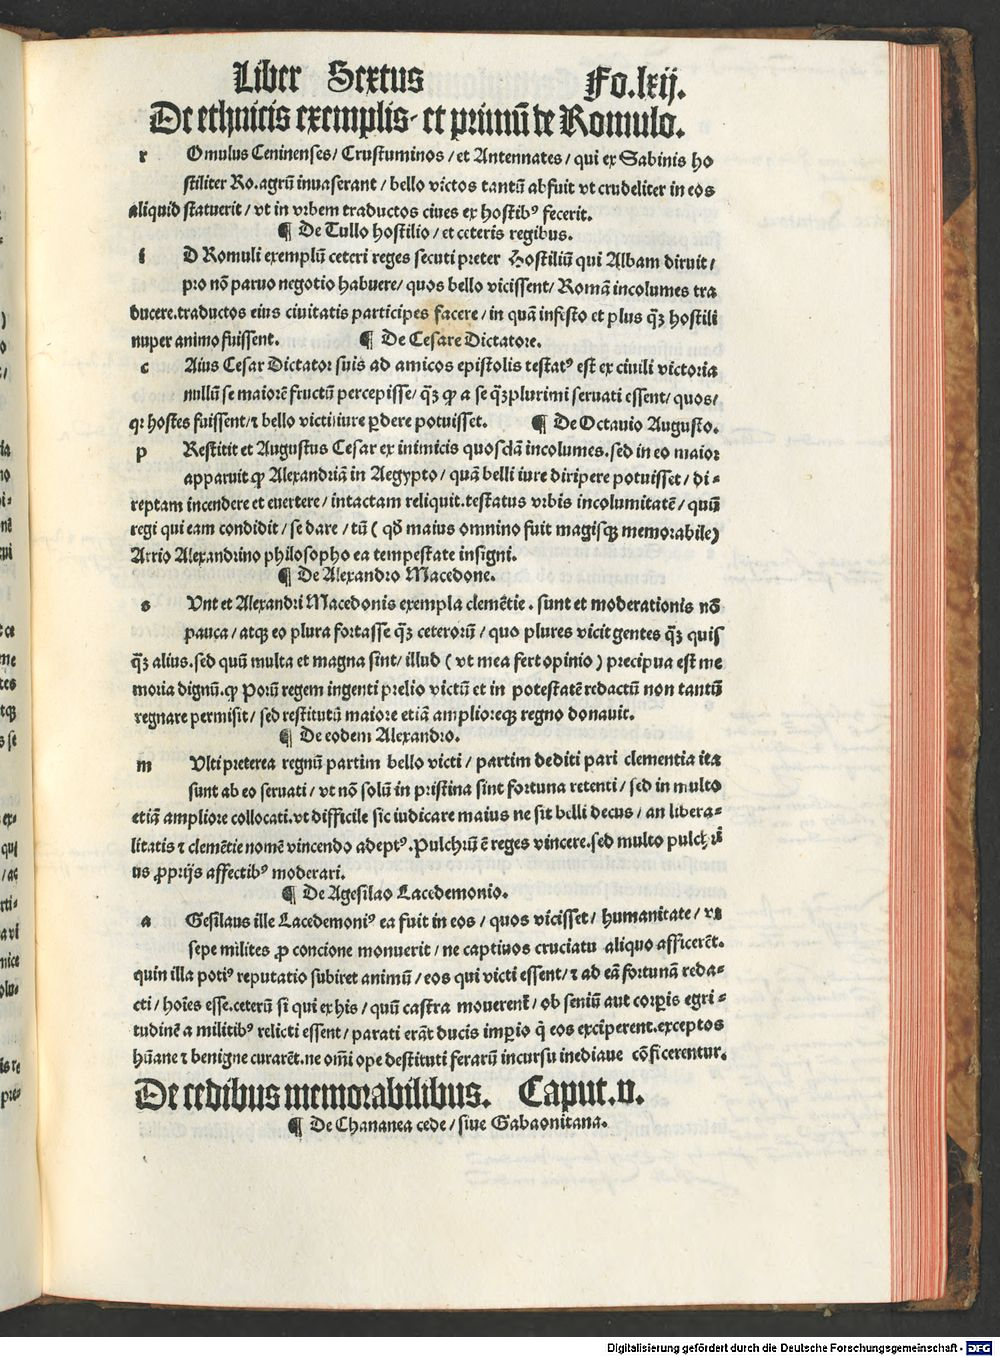 Liber Sextus Fo.lxij.
De ethnicis exemplis, et primū de Romulo.
r Omulus Ceninenses / Crustuminos / et Antennates / qui ex Sabinis ho
stiliter Ro.agrū inuaserant / bello victos tantū abfuit vt crudeliter in eos
aliquid statuerit / vt in vrbem traductos ciues ex hostibꝰ fecerit.
¶ De Tullo hostilio / et ceteris regibus.
i D Romuli exemplū ceteri reges secuti preter Hostiliū qui Albam diruit /
pro nō paruo negotio habuere / quos bello vicissent / Romā incolumes tra
ducere.traductos eius ciuitatis participes facere / in quā infesto et plus q̄ꝫ hostili
nuper animo fuissent. ¶ De Cesare Dictatore.
c Aius Cesar Dictator suis ad amicos epistolis testatꝰ est ex ciuili victoria
nullū se maiorē fructū percepisse / q̄ꝫ ꝙ a se q̄ꝫplurimi seruati essent / quos /
qꝛ hostes fuissent / ⁊ bello victi iure ꝑdere potuisset. ¶ De Octauio Augusto.
p Restitit et Augustus Cesar ex inimicis quosdā incolumes.sed in eo maior
apparuit ꝙ Alexandriā in Aegypto / quā belli iure diripere potuisset / di-
reptam incendere et euertere / intactam reliquit.testatus vrbis incolumitatē / quū
regi qui eam condidit / se dare / tū ( qḋ maius omnino fuit magisqꝫ memorabile)
Arrio Alexandrino philosopho ea tempestate insigni.
¶ De Alexandro Macedone.
s Unt et Alexandri Macedonis exempla clemētie . sunt et moderationis nō
pauca / atqꝫ eo plura fortasse q̄ꝫ ceterorū / quo plures vicit gentes q̄ꝫ quis
q̄ꝫ alius.sed quū multa et magna sint / illud ( vt mea fert opinio ) precipua est me
moria dignū.ꝙ Porū regem ingenti prelio victū et in potestatē redactū non tantū
regnare permisit / sed restitutū maiore etiā amplioreqꝫ regno donauit.
¶ De eodem Alexandro.
m Ulti preterea regnū partim bello victi / partim dediti pari clementia ita
sunt ab eo seruati / vt nō solū in pristina sint fortuna retenti / sed in multo
etiā ampliore collocati.vt difficile sic iudicare maius ne sit belli decus / an libera-
litatis ⁊ clemētie nomē vincendo adeptꝰ.Pulchrū ē reges vincere.sed multo pulchri
us ꝓprijs affectibꝰ moderari.
¶ De Agesilao Lacedemonio.
a Gesilaus ille Lacedemoniꝰ ea fuit in eos / quos vicisset / humanitate / vt
sepe milites ꝓ concione monuerit / ne captiuos cruciatu aliquo afficerēt.
quin illa potiꝰ reputatio subiret animū / eos qui victi essent / ⁊ ad eā fortunā reda-
cti / hoīes esse.ceterū si qui ex his / quū castra mouerent / ob seniū aut corꝑis egri-
tudinē a militibꝰ relicti essent / parati erāt ducis imꝑio q̇ eos exciperent.exceptos
hūane ⁊ benigne curarēt.ne om̄i ope destituti ferarū incursu inediaue cōficerentur.
De cedibus memorabilibus. Caput.v.
¶ De Chananea cede / siue Gabaonitana.
Digitalisierung gefördert durch die Deutsche Forschungsgemeinschaft - DFG